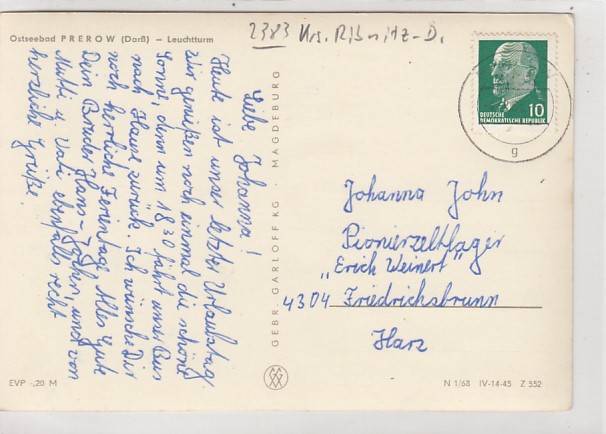 Ostseebad PREROW (Darß) — Leuchtturm
2383 Krs. Ribnitz-D.
Liebe Johanna!
Heute ist unser letzter Urlaubstag.
Wir genießen noch einmal die schöne
Sonne, denn um 18³⁰ fährt unser Bus
nach Hause zurück. Ich wünsche Dir
noch herrliche Ferientage. Alles Gute
Dein Bruder Hans-Jochen, und von
Mutti u. Vati ebenfalls recht
herzliche Grüße.
GEBR. GARLOFF KG · MAGDEBURG
10
DEUTSCHE
DEMOKRATISCHE REPUBLIK
g
Johanna John
Pionierzeltlager
„Erich Weinert"
4304 Friedrichsbrunn
Harz
EVP -,20 M
N 1/68 IV-14-45 Z 552